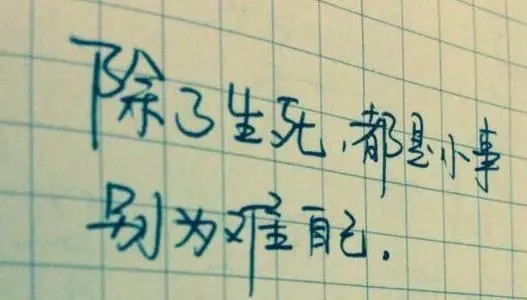 除了生死,都是小事
别为难自己.